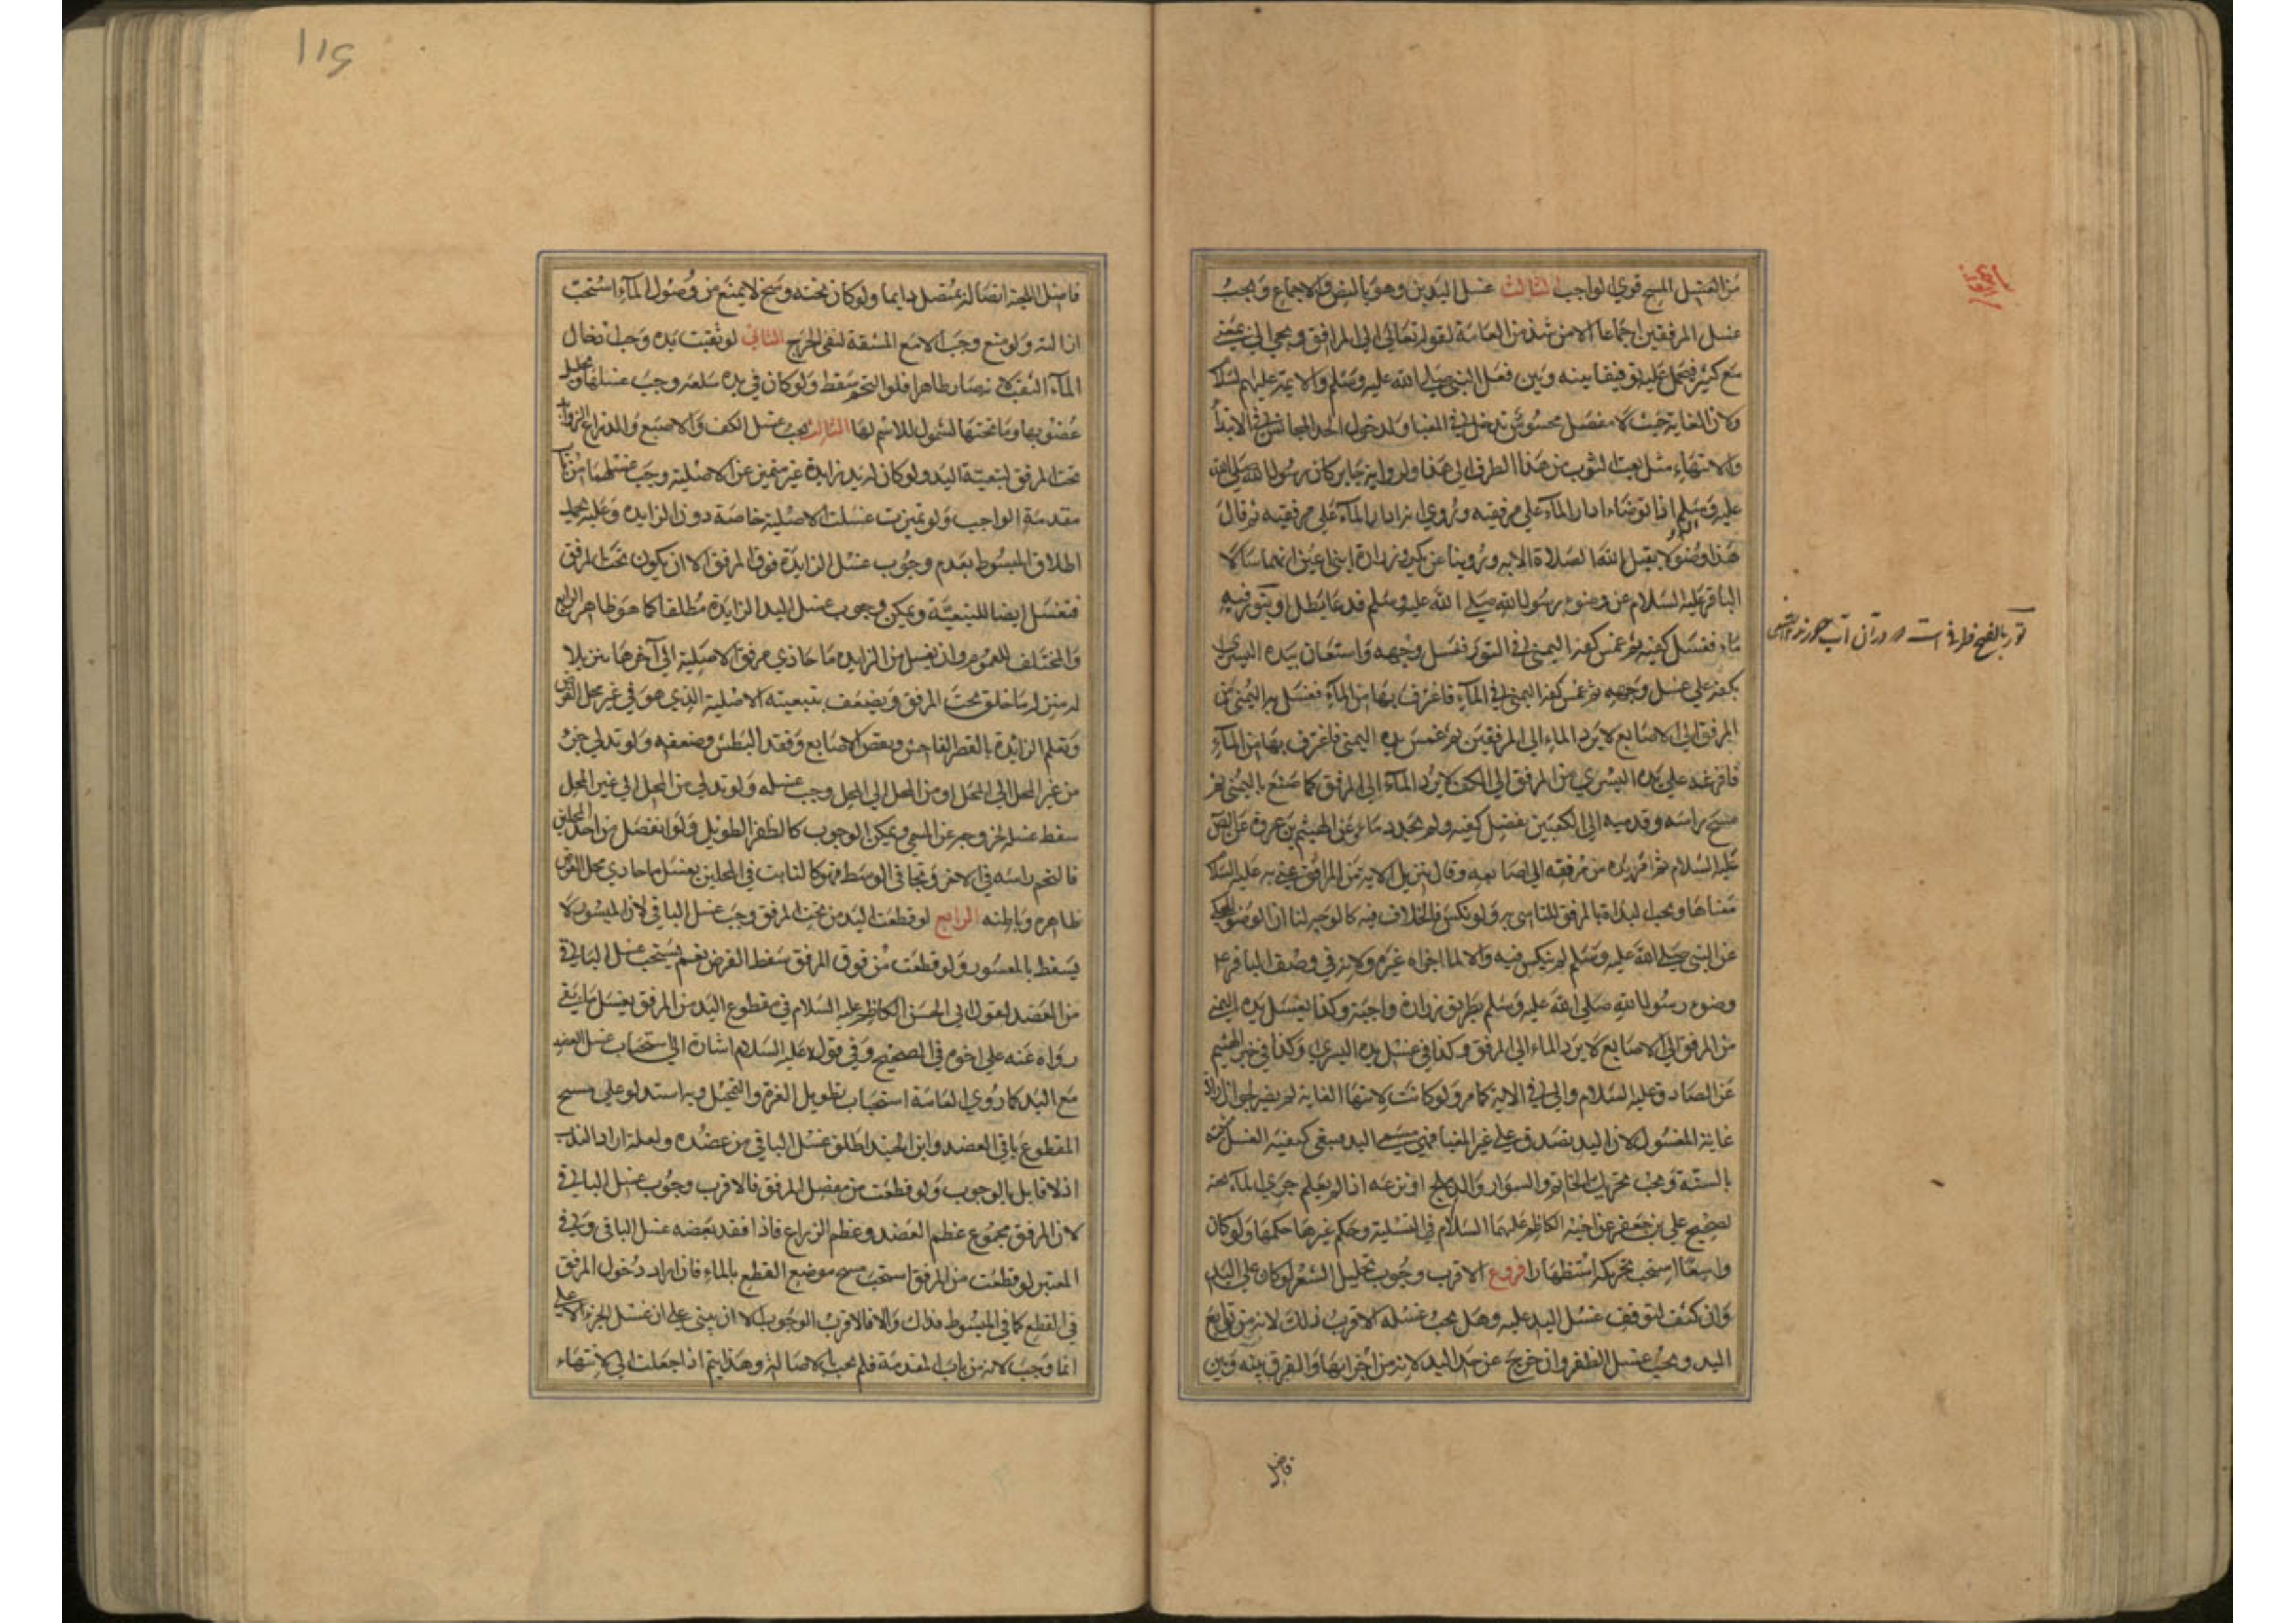 من الغسل المسح قوي الواجب الثالث غسل اليدين وهو بالنص والاجماع ويجب
غسل المرفقين اجماعا الا من شذ من العامة لقوله تعالى الى المرافق ومجي الى بمعنى
مع كثير فيحمل عليه توفيقا بينه وبين فعل النبي صلى الله عليه وسلم والايمة عليهم السلام
ولان الغاية حيث لا مفصل محسوس تدخل في المغيا ولدخول الحد المجانس في الابتدا
والانتهاء مثل بعت الثوب من هذا الطرف الى هذا ولرواية جابر كان رسول الله صلى الله
عليه وسلم اذا توضاء ادار الماء على مرفقيه وروي انه ادار الماء على مرفقيه ثم قال
هذا وضوء لا يقبل الله الصلاة الا به وروينا عن بكير وزرارة ابني اعين انهما سالا
الباقر عليه السلام عن وضوء رسول الله صلى الله عليه وسلم فدعا بطل او بتور فيه
ماء فغسل كفيه ثم غمس كفه اليمنى في التور فغسل وجهه واستعان بيده اليسرى
بكفه على غسل وجهه ثم غمس كفه اليمنى في الماء فاغترف بها من الماء فغسل يده اليمنى من
المرفق الى الاصابع لا يرد الماء الى المرفقين ثم غمس يده اليمنى فاغترف بها من الماء
فافرغه على يده اليسرى من المرفق الى الكف لا يرد الماء الى المرفق كما صنع باليمنى ثم
مسح راسه وقدميه الى الكعبين بفضل كفيه ولم يجدد ماء وعن الهيثم بن عروة عن الصادق
عليه السلام ثم امر يده من مرفقه الى اصابعه وقال تنزيل الاية من المرافق عنى به عليه السلام
معناها ويجب البداة بالمرفق للتاسي به ولو نكس فالخلاف فيه كالوجه لنا ان الوضوء المحكي
عن النبي صلى الله عليه وسلم لم ينكس فيه والا لما اجزاه غيره ولانه في وصف الباقر ع
وضوء رسول الله صلى الله عليه وسلم بطريق زرارة واجبة وكذا يغسل يده اليمنى
من المرفق الى الاصابع لا يرد الماء الى المرفق وكذا في غسل يده اليسرى وكذا في خبر الهيثم
عن الصادق عليه السلام والى في الاية كما مر ولو كانت لانتهاء الغاية لم يضر لجواز ارادة
غاية المغسول لان اليد تصدق على غير المغيا فهي تقسيم اليد فيبقى كيفية الغسل
بالسنة ويجب تحريك الخاتم والسوار والدملج او نزعه اذا لم يعلم جري الماء تحته
لصحيح علي بن جعفر عن اخيه الكاظم عليهما السلام في وحكم غيرها حكمها ولو كان
واسعا استحب تحريكه استظهارا فروع الاقرب وجوب تخليل الشعر لو كان على اليد
وان كثف لتوقف غسل اليد عليه وهل يجب غسله الاقرب ذلك لانه من توابع
اليد ويجب غسل الظفر وان خرج عن حد اليد لانه من اجزايها والفرق بينه وبين
فاضل
تور بالفتح ظرفى است در آن آب
۱۱۶
فاضل اللحية اتصاله بمتصل دايما ولو كان تحته وسخ لا يمنع من وصول الماء استحب
ازالته ولو منع وجب الا مع المشقة لنفي الحرج الثاني لو ثقبت يده وجب ادخال
الماء الثقب لانه صار ظاهرا فلو التحم سقط ولو كان في يده سلعة وجب غسلها وكل
عضو بها وما تحتها لشمول الاسم لها الثالث يجب غسل الكف والاصبع والذراع الزوائد
تحت المرفق لتبعية اليد ولو كان له يد زايدة غير متميزة عن الاصلية وجب غسلهما من باب
مقدمة الواجب ولو تميزت غسلت الاصلية خاصة دون الزايده وعليه يحمل
اطلاق المبسوط بعدم وجوب غسل الزايدة فوق المرفق الا ان يكون تحت المرفق
فتغسل ايضا للتبعية ويمكن وجوب غسل اليد الزايدة مطلقا كما هو ظاهر الشرايع
والمختلف للعموم وان يغسل من الزايده ما حاذى مرفق الاصلية الى آخرها تنزيلا
له منزلة ما خلق تحت المرفق ويضعف بتبعيته الاصلية الذي هو في غير محل الفرض
وتعلم الزايدة بالقصر الفاحش ونقص الاصابع وفقد البطش وضعفه ولو تدلى جزء
من غير المحل الى المحل او من المحل الى المحل وجب غسله ولو تدلى من المحل الى غير المحل
سقط غسله لخروجه عن المسمى ويمكن الوجوب كالظفر الطويل ولو انفصل من احد المحلين
فالتحم راسه في الاخر وتجافى الوسط فهو كالنابت في المحلين يغسل ما حاذى محل الفرض
ظاهره وباطنه الرابع لو قطعت اليد من تحت المرفق وجب غسل الباقي لان الميسور لا
يسقط بالمعسور ولو قطعت من فوق المرفق سقط الفرض نعم يستحب غسل الباقي
من العضد لقول ابي الحسن الكاظم عليه السلام في مقطوع اليد من المرفق يغسل ما بقي
رواه عنه علي اخوه في الصحيح وفي قوله عليه السلام اشارة الى استحباب غسل العضد
مع اليد كما روى العامة استحباب تطويل الغرة والتحجيل وبه استدلوا على مسح
المقطوع باقي العضد وابن الجنيد اطلق غسل الباقي من عضده ولعله اراد الندب
اذ لا قايل بالوجوب ولو قطعت من مفصل المرفق فالاقرب وجوب غسل الباقي
لان المرفق مجموع عظم العضد وعظم الذراع فاذا فقد بعضه غسل الباقي وفي
المعتبر لو قطعت من المرفق استحب مسح موضع القطع بالماء فان اراد دخول المرفق
في القطع كما في المبسوط فذاك والا فالاقرب الوجوب الا ان يبنى على ان غسل الجزء الاعلى
انما وجب لانه من باب المقدمة فلم يجب بالاصالة وهذا يتم اذا جعلت الى لانتهاء